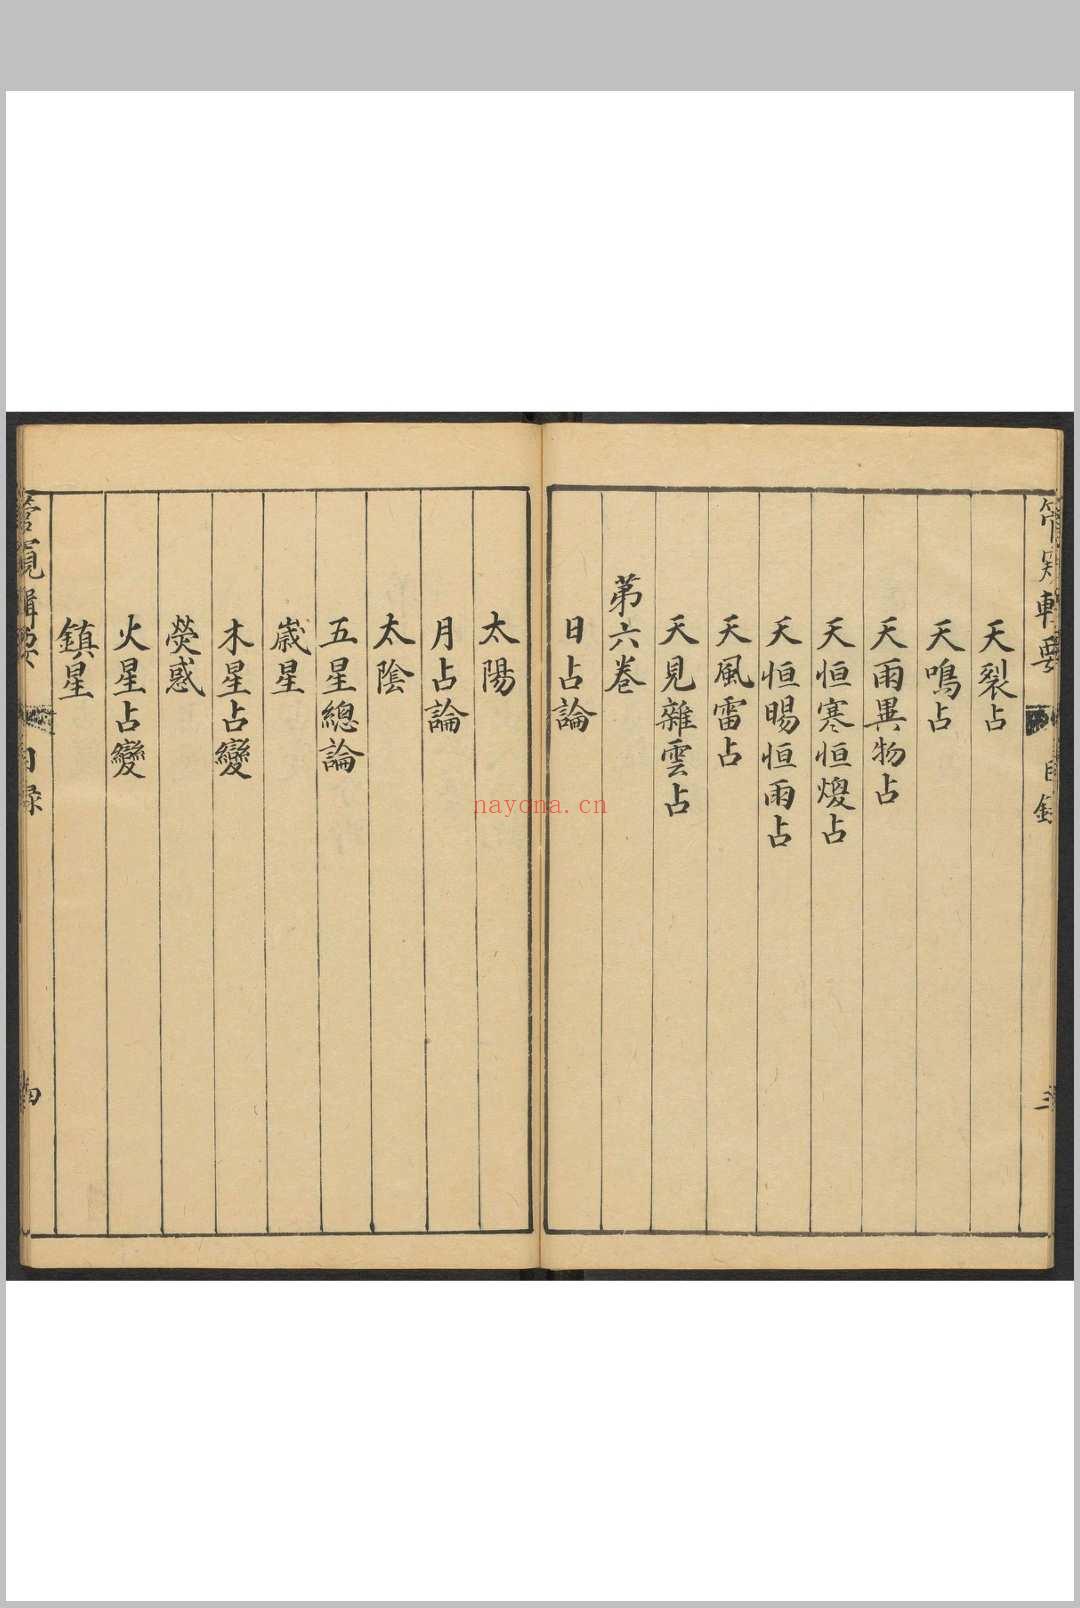 天裂占
天鳴占
天雨異物占
天恒寒恒燠占
天恒暘恒雨占
天風雷占
天見雜雲占
第六卷
日占論
太陽
月占論
太陰
五星總論
歲星
木星占變
熒惑
火星占變
鎮星
管窺輯要
目録
四
三
nayona.cn